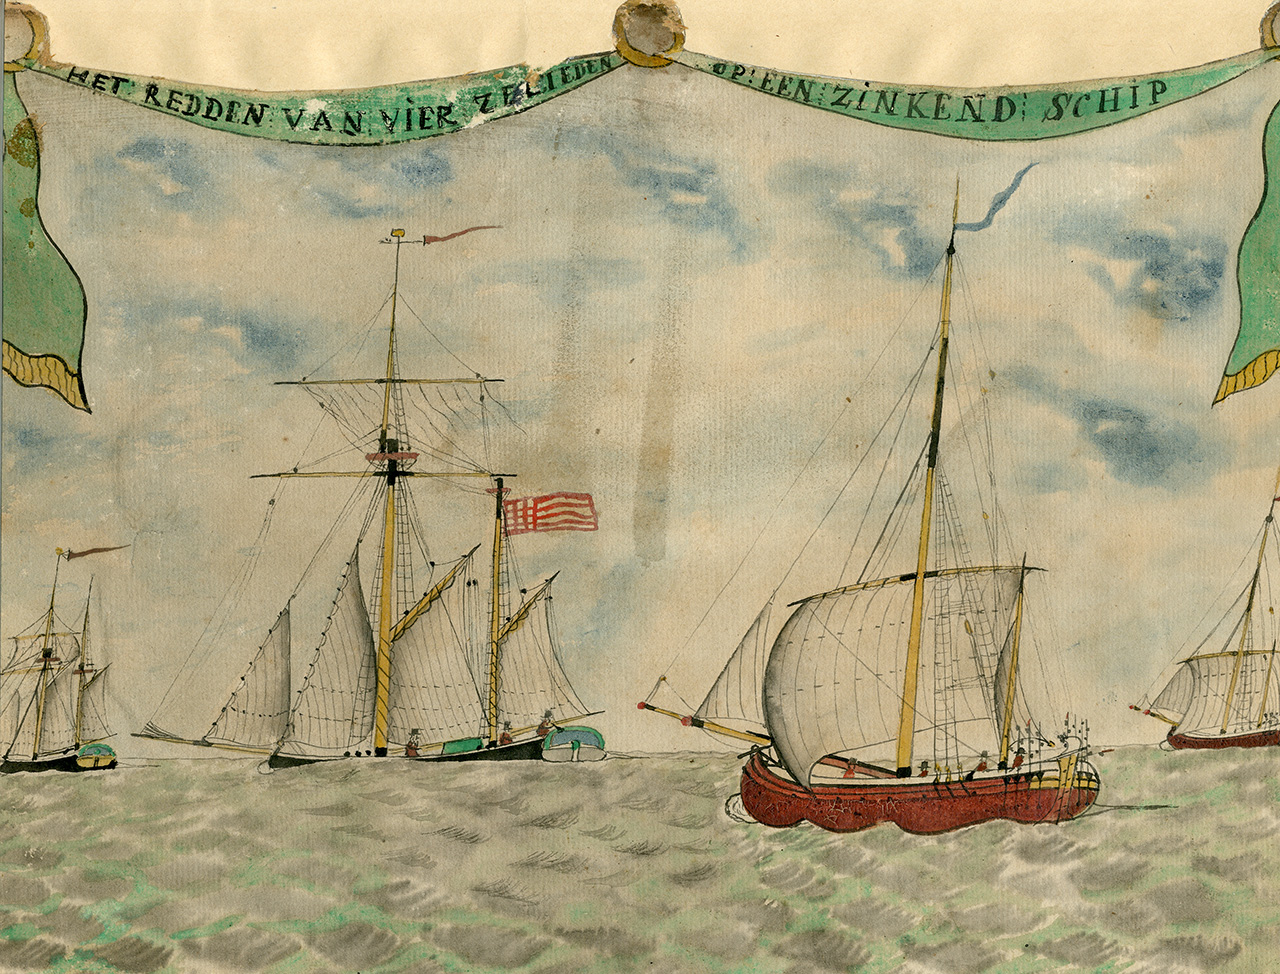 HET REDDEN VAN VIER ZEELIEDEN
OP! EEN ZINKEND SCHIP